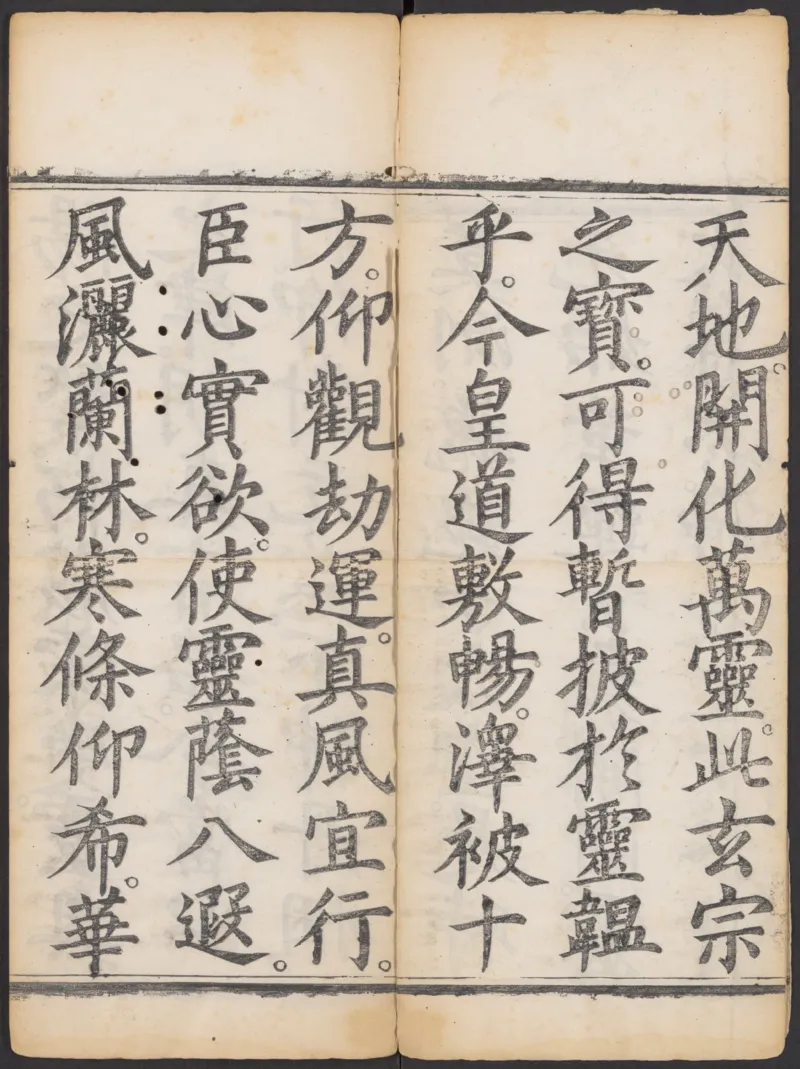 天地。開化萬靈。此玄宗
之寶。可得暫披於靈韞
乎。今皇道敷暢。澤被十
方。仰觀劫運。真風宜行。
臣心實欲。使靈蔭八遐。
風灑蘭林。寒條仰希。華